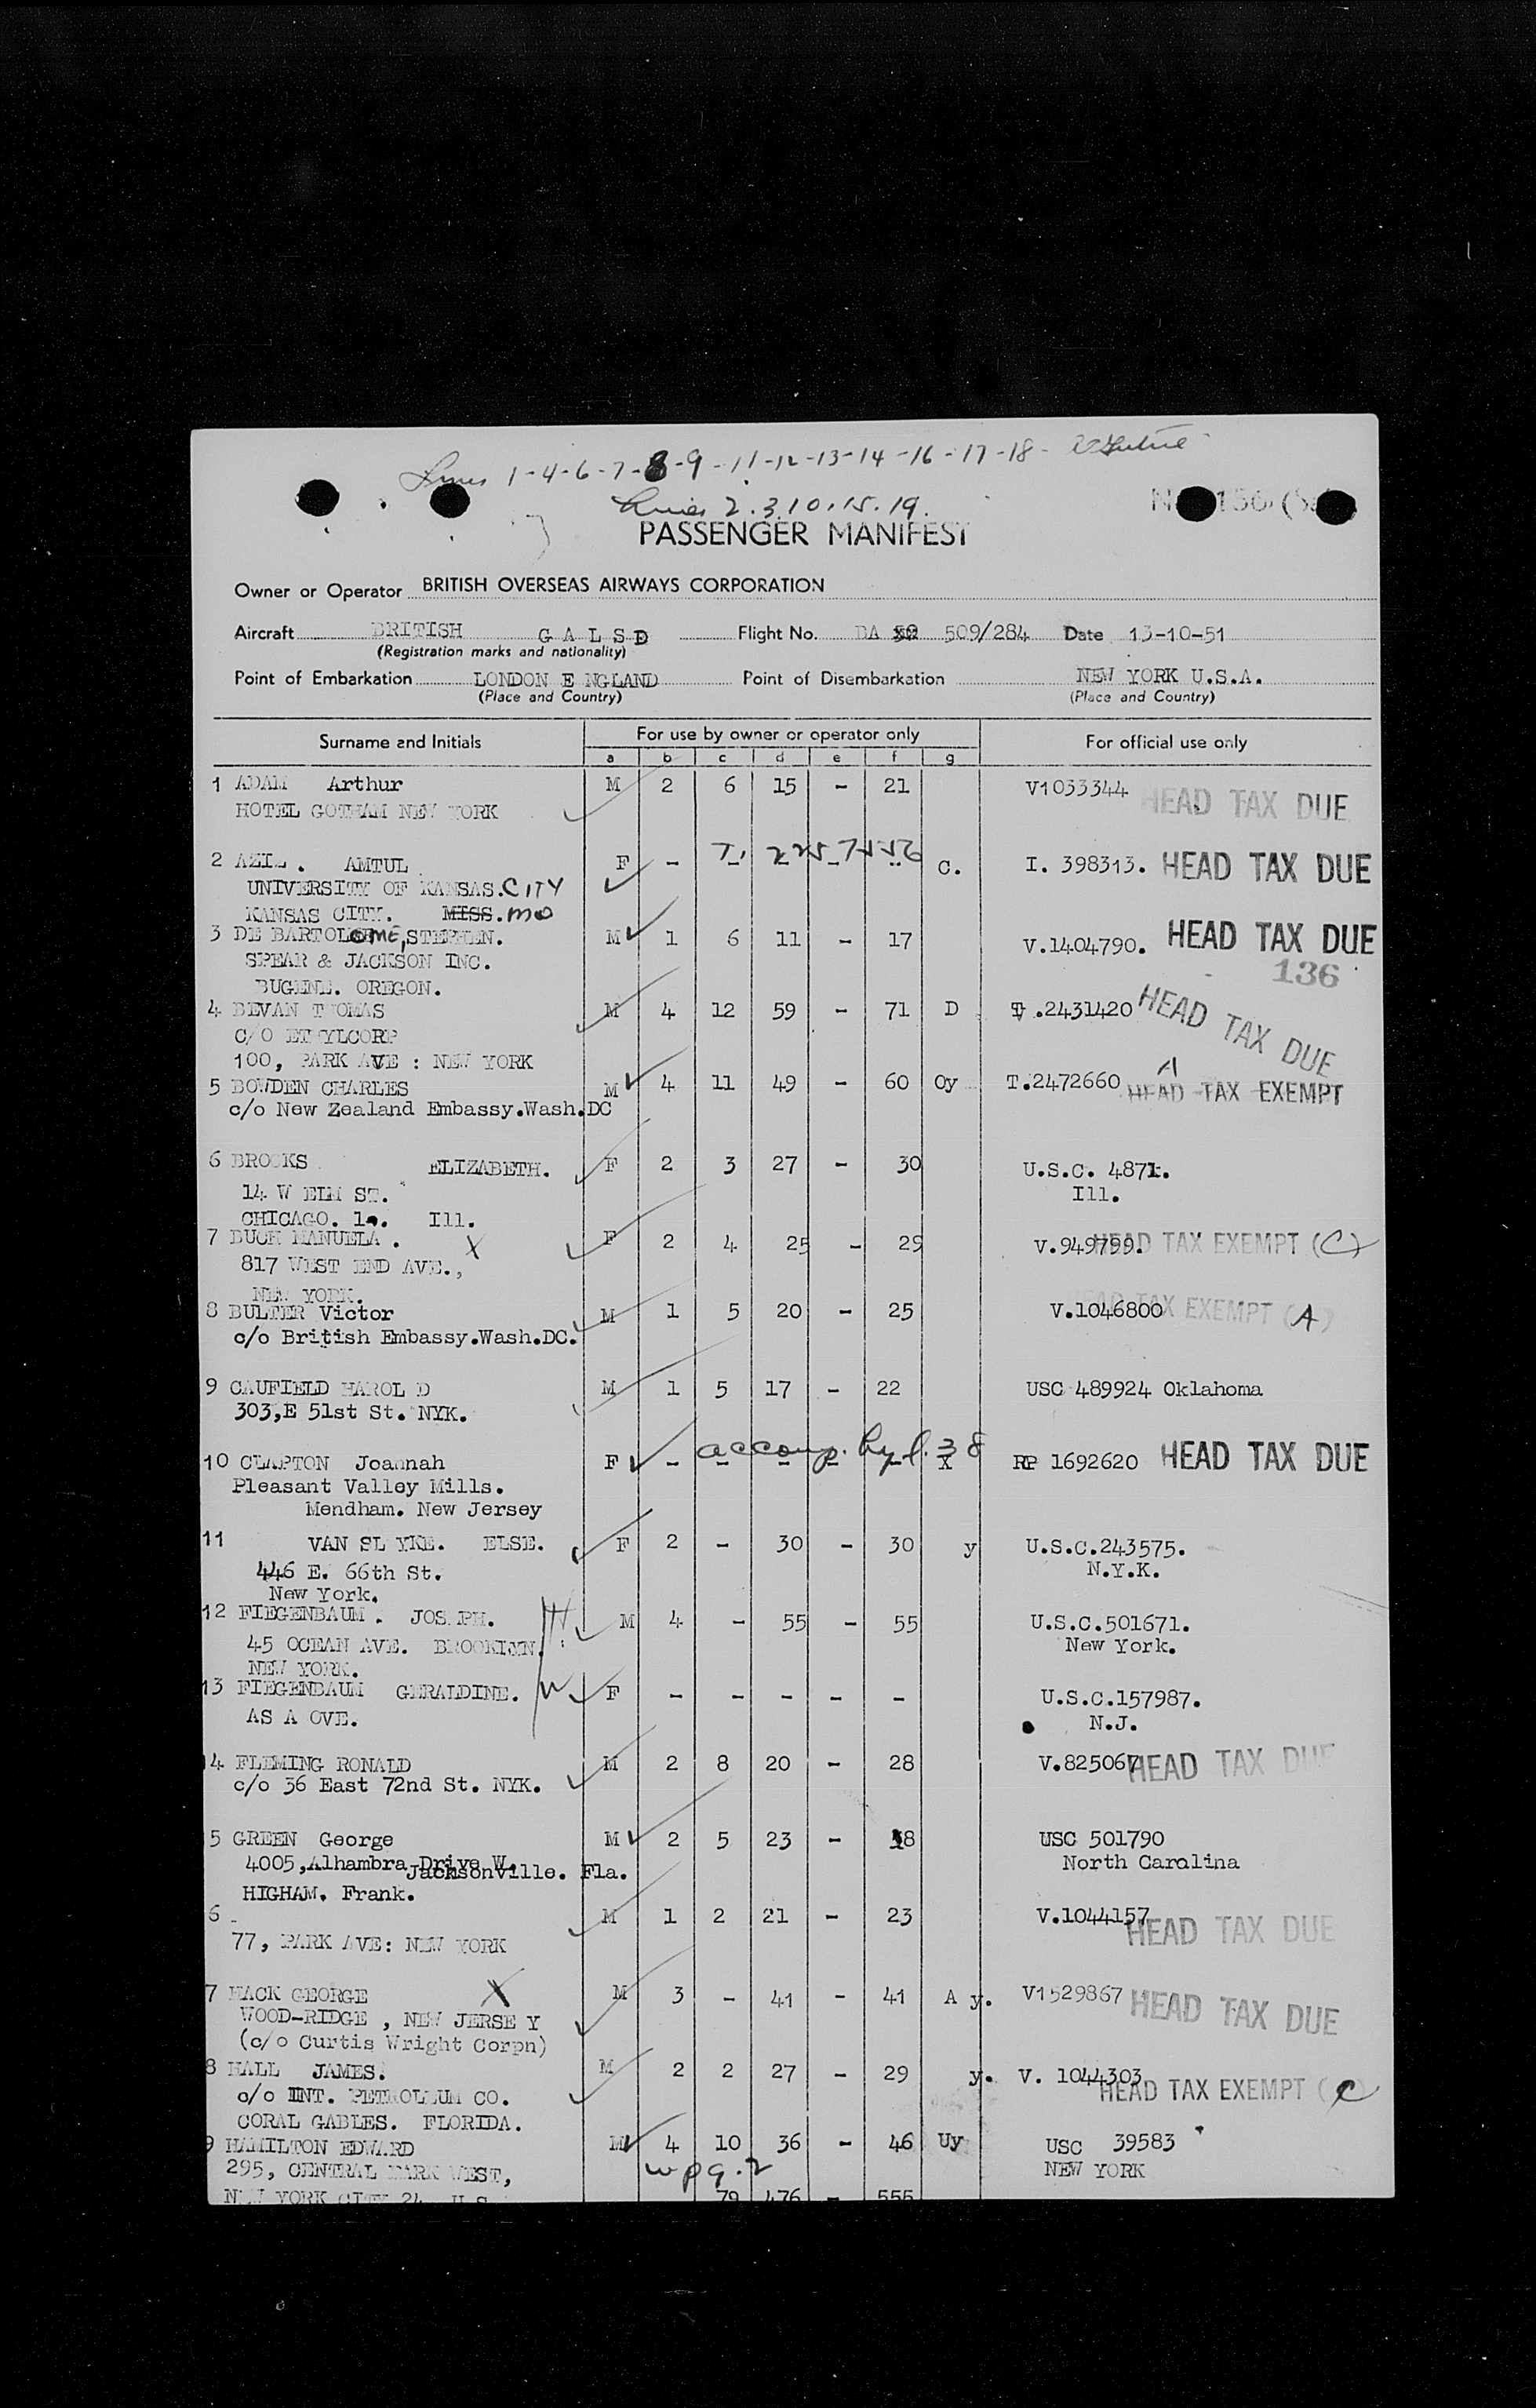 Lines 1-4-6-7-8-9-11-12-13-14-16-17-18-
Lines 2.3.10.15.19.
PASSENGER MANIFEST
Owner or Operator BRITISH OVERSEAS AIRWAYS CORPORATION
Aircraft BRITISH G A L S D Flight No. BA 509/284 Date 13-10-51
(Registration marks and nationality)
Point of Embarkation LONDON E NGLAND Point of Disembarkation NEW YORK U.S.A.
(Place and Country) (Place and Country)
Surname and Initials For use by owner or operator only For official use only
a b c d e f g
1 ADAM Arthur M 2 6 15 - 21 V1033344 HEAD TAX DUE
HOTEL GOTHAM NEW YORK
2 AMTUL F - - - - - C. I. 398313. HEAD TAX DUE
UNIVERSITY OF KANSAS.CITY
KANSAS CITY. MISS. MO
3 DE BARTOLOME, STEPHEN. M 1 6 11 - 17 V.1404790. HEAD TAX DUE
SPEAR & JACKSON INC. 136
EUGENE. OREGON.
4 BEVAN THOMAS M 4 12 59 - 71 D .2431420 HEAD TAX DUE
C/O ETHYLCORP
100, PARK AVE : NEW YORK
5 BOWDEN CHARLES M 4 11 49 - 60 Oy T.2472660 A HEAD TAX EXEMPT
c/o New Zealand Embassy.Wash.DC
6 BROOKS ELIZABETH. F 2 3 27 - 30 U.S.C. 4871.
14 W ELM ST. Ill.
CHICAGO. Ill.
7 BUCH MANUELA . X F 2 4 25 - 29 V.949799. HEAD TAX EXEMPT (C)
817 WEST END AVE.,
NEW YORK.
8 BULTER Victor M 1 5 20 - 25 V.1046800 HEAD TAX EXEMPT (A)
c/o British Embassy.Wash.DC.
9 CAUFIELD HAROL D M 1 5 17 - 22 USC 489924 Oklahoma
303,E 51st St. NYK.
accomp. by l. 38
10 CLAPTON Joannah F - - - - - X RP 1692620 HEAD TAX DUE
Pleasant Valley Mills.
Mendham. New Jersey
11 VAN SL YKE. ELSE. F 2 - 30 - 30 y U.S.C.243575.
446 E. 66th St. N.Y.K.
New York.
12 FIEGENBAUM . JOSEPH. M 4 - 55 - 55 U.S.C.501671.
45 OCEAN AVE. BROOKLYN. New York.
NEW YORK.
13 FIEGENBAUM GERALDINE. F - - - - - U.S.C.157987.
AS A OVE. N.J.
14 FLEMING RONALD M 2 8 20 - 28 V.825067 HEAD TAX DUE
c/o 36 East 72nd St. NYK.
5 GREEN George M 2 5 23 - 8 USC 501790
4005,Alhambra Drive W. North Carolina
Jacksonville. Fla.
HIGHAM. Frank.
6 M 1 2 21 - 23 V.1044157 HEAD TAX DUE
77, PARK AVE: NEW YORK
7 HACK GEORGE X M 3 - 41 - 41 A y. V1529867 HEAD TAX DUE
WOOD-RIDGE , NEW JERSE Y
(c/o Curtis Wright Corpn)
8 HALL JAMES. M 2 2 27 - 29 y. V. 1044303 HEAD TAX EXEMPT (C)
c/o INT. PETROLEUM CO.
CORAL GABLES. FLORIDA.
9 HAMILTON EDWARD M 4 10 36 - 46 Uy USC 39583
295, CENTRAL PARK WEST, w pg. 2 NEW YORK
NEW YORK CITY 24 U S 79 476 - 555